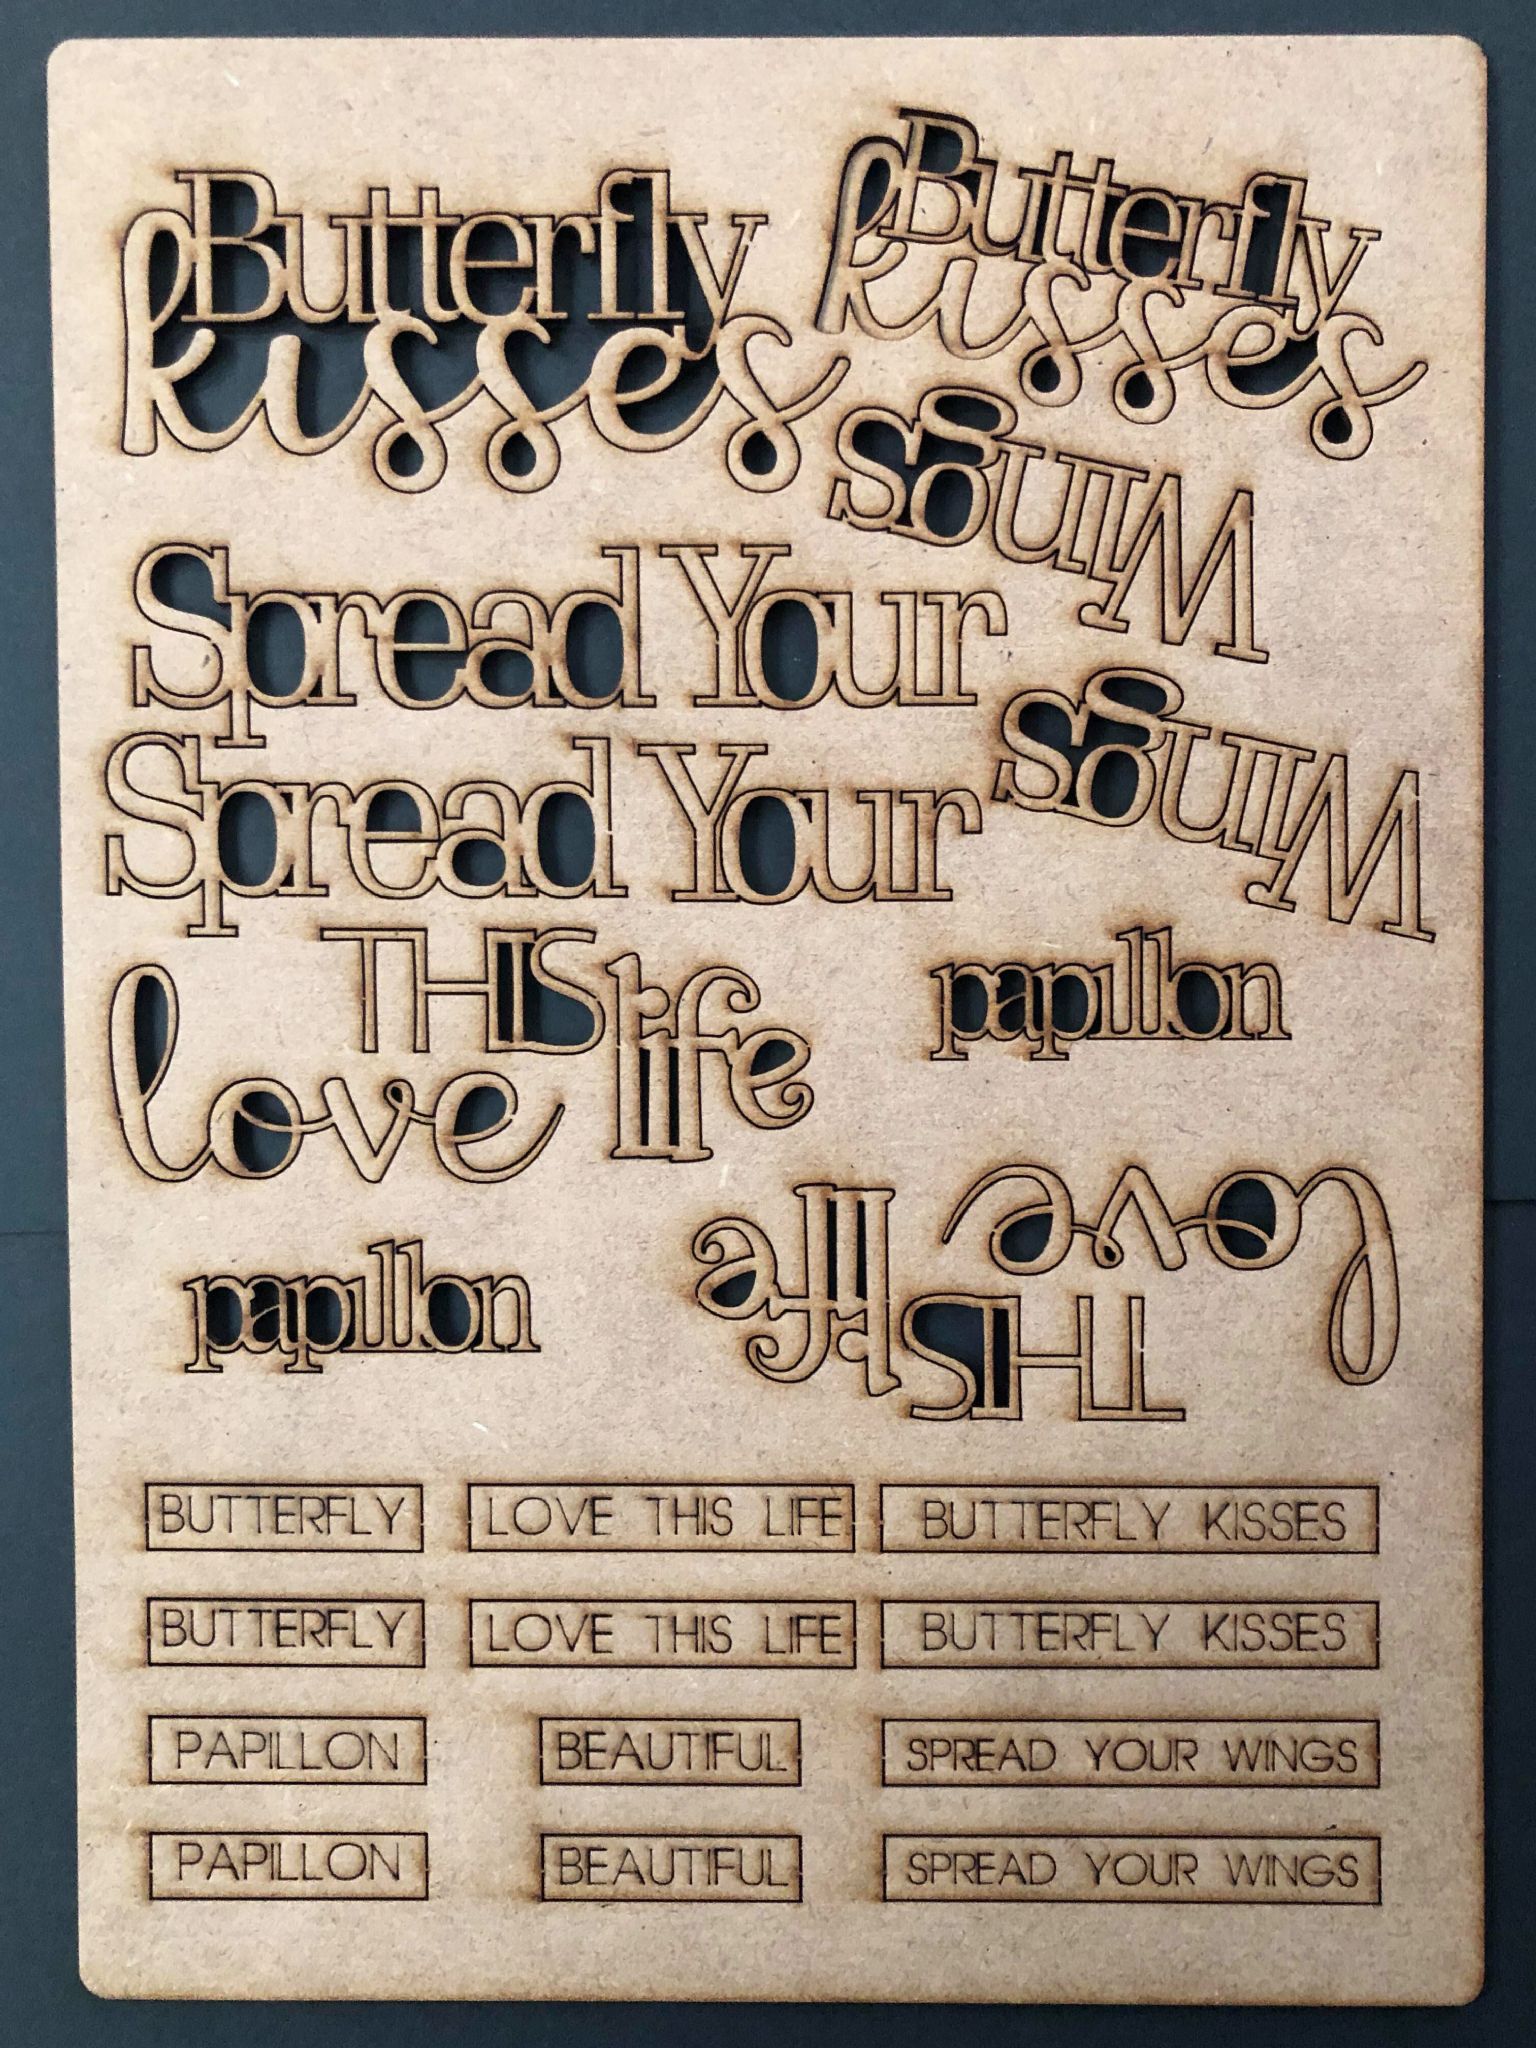 Butterfly Butterfly
kisses kisses
Wings
Spread Your
Wings
Spread Your
THIS
love life
papillon
papillon
love
THIS life
BUTTERFLY LOVE THIS LIFE BUTTERFLY KISSES
BUTTERFLY LOVE THIS LIFE BUTTERFLY KISSES
PAPILLON BEAUTIFUL SPREAD YOUR WINGS
PAPILLON BEAUTIFUL SPREAD YOUR WINGS